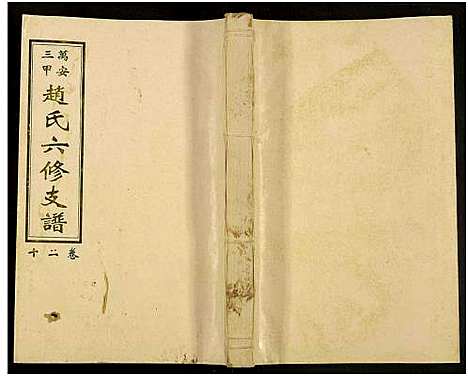 萬安
三甲
趙氏六修支譜
卷二十